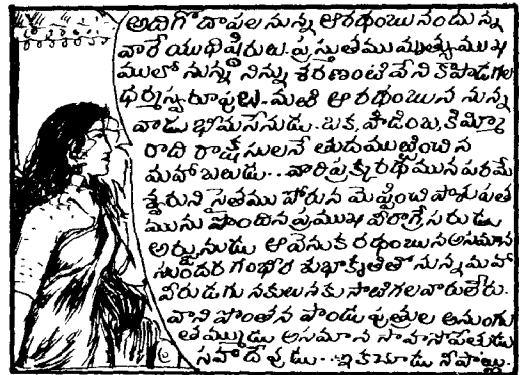 అదిగో దాపల నున్న ఆ రథంబు నందున్న
వారే యుధిష్ఠిరులు. ప్రస్తుతము మృత్యుముఖ
ములో నున్న నిన్ను శరణంటివేని కాపాడగల
ధర్మస్వరూపులు. మఱి ఆ రథంబున నున్న
వాడు భీమసేనుడు. బక, హిడింబ, కిమ్మీ
రాది రాక్షసులనే తుదముట్టించిన
మహా బలుడు.. వారి ప్రక్క రథమున పరమే
శ్వరుని సైతము పోరున మెప్పించి పాశుపత
మును పొందిన ప్రముఖ వీరాగ్రేసరుడు
అర్జునుడు ఆ వెనుక రథంబున అసమాన
సుందర గంభీర శుభాకృతితో నున్న మహా
వీరుడగు నకులునకు సాటిగలవారు లేరు.
వాని పొంతన పాండు పుత్రుల అనుంగు
తమ్ముడు అసమాన సాహసోపేతుడు
సహదేవుడు.. ఇక చూడు నీ పాట్లు..